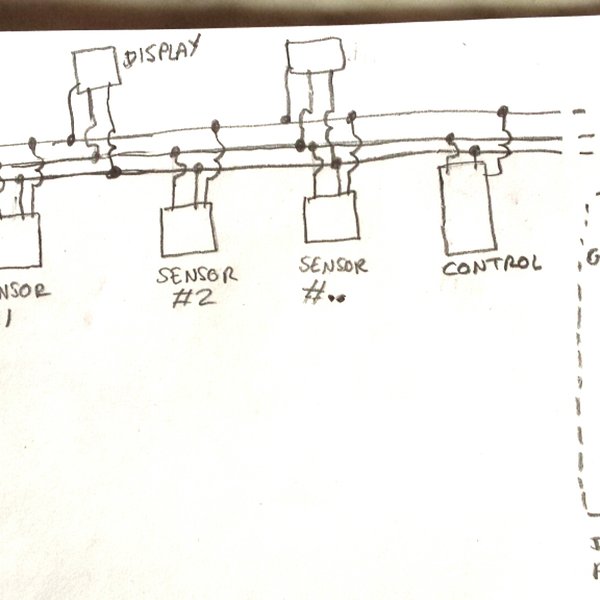 DISPLAY
NSOR
1
SENSOR
#2
SENSOR
#..
CONTROL